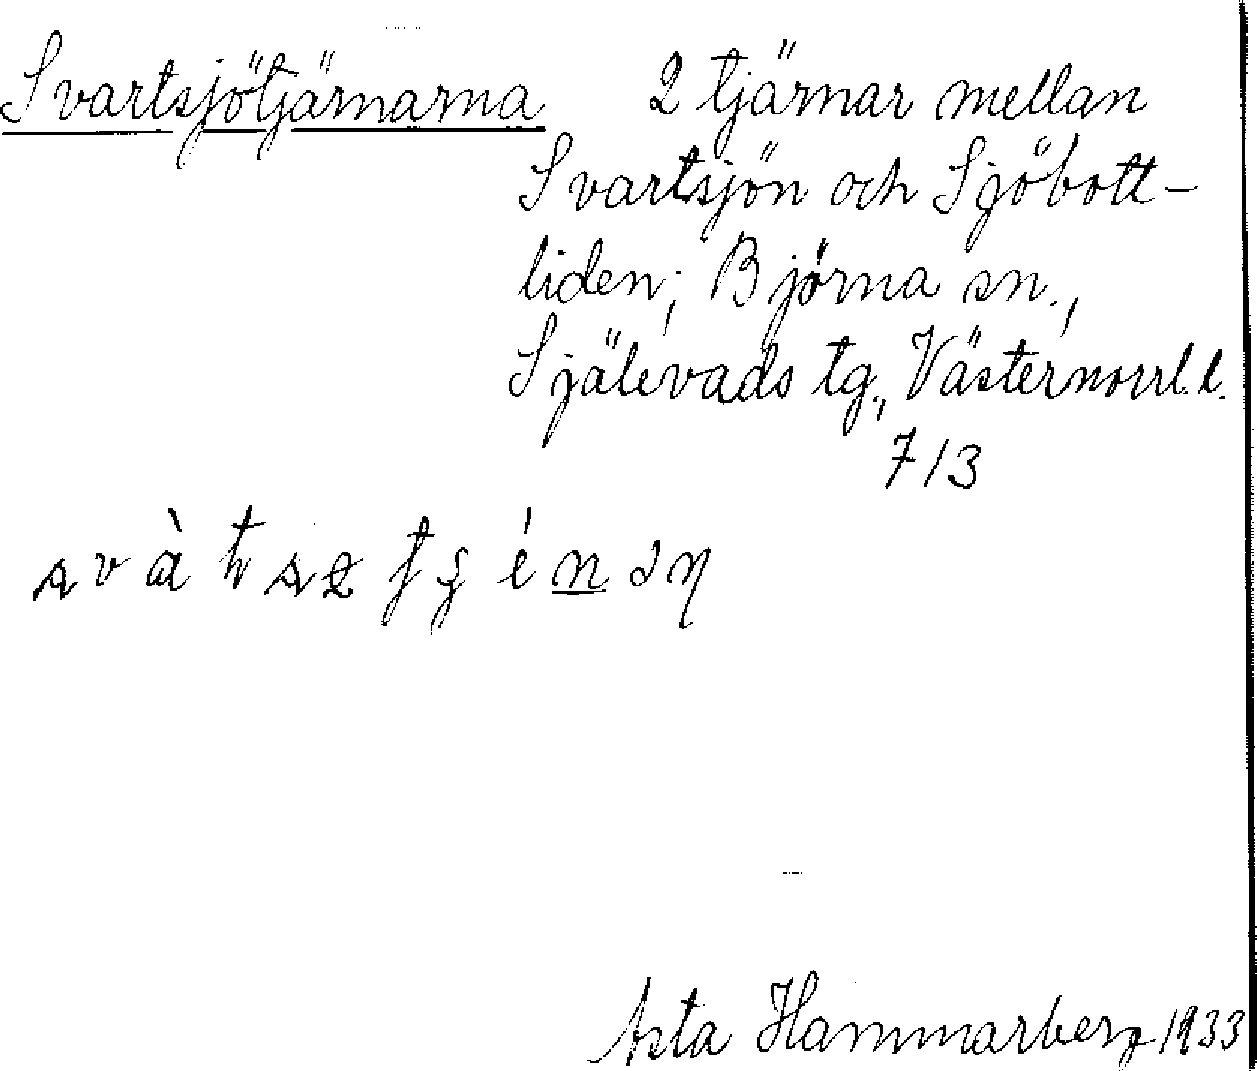 Svartsjötjärnarna 2 tjärnar mellan
Svartsjön och Sjöbott-
liden, Björna sn.,
Själevads tg., Västernorrl. l.
7/3
Asta Hammarberg 1933